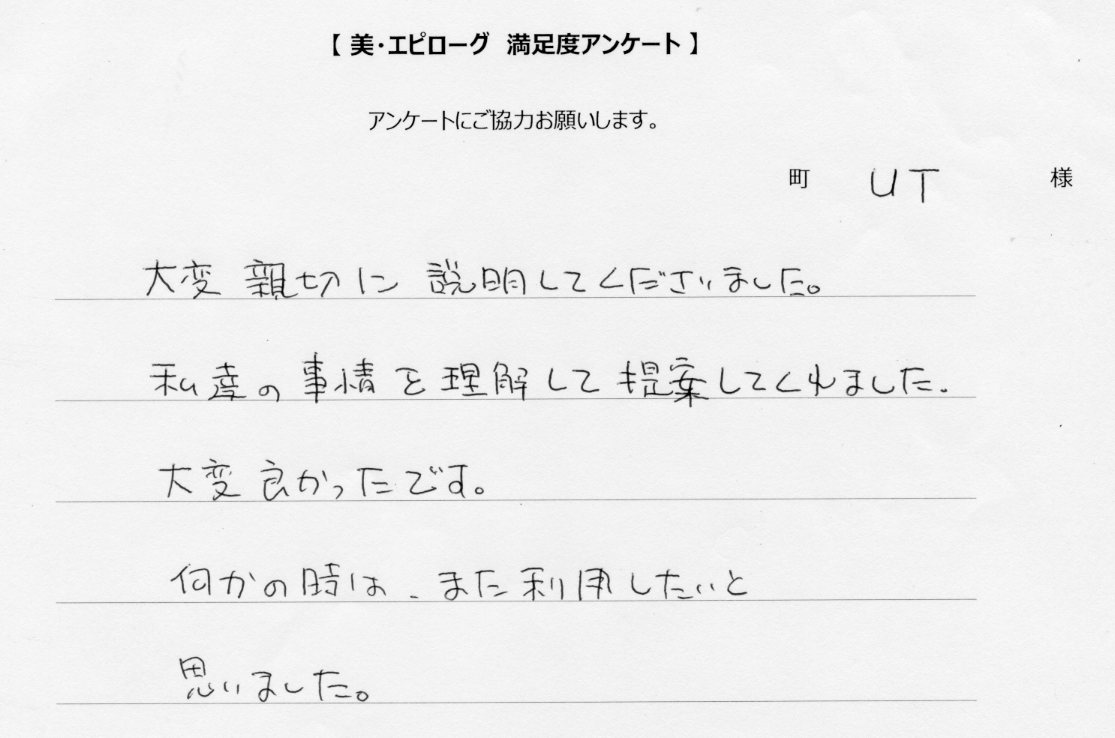 【 美・エピローグ 満足度アンケート 】
アンケートにご協力お願いします。
町 UT 様
大変 親切に 説明してくださいました。
私達の 事情を理解して 提案してくれました.
大変 良かったです。
何かの時は、また利用したいと
思いました。